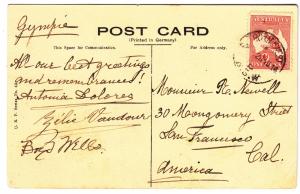 Gympie
POST CARD
(Printed in Germany)
This Space for Communication.
For Address only.
All our best greetings
and remembrances!
Antonia Dolores
Monsieur R. Newell
30 Montgomery Street
San Francisco
Cal.
America
AUSTRALIA